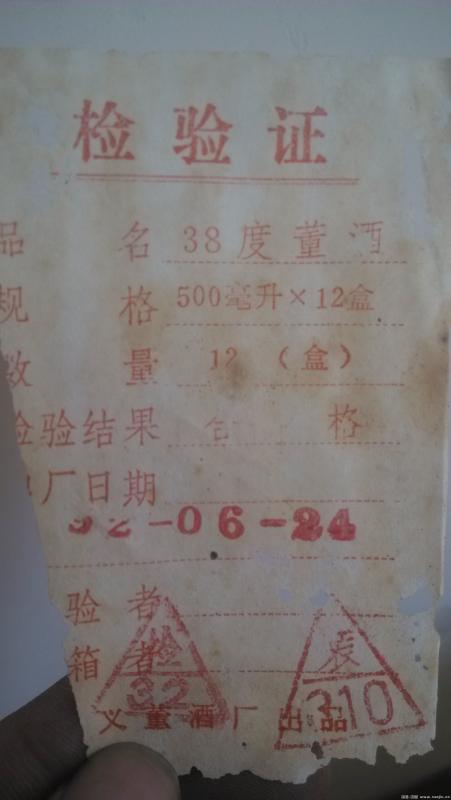 检验证
品 名 38度董酒
规 格 500毫升×12盒
数 量 12(盒)
检验结果 合 格
厂日期
92-06-24
验者
箱者
检
32
袁
310
义董酒厂出品